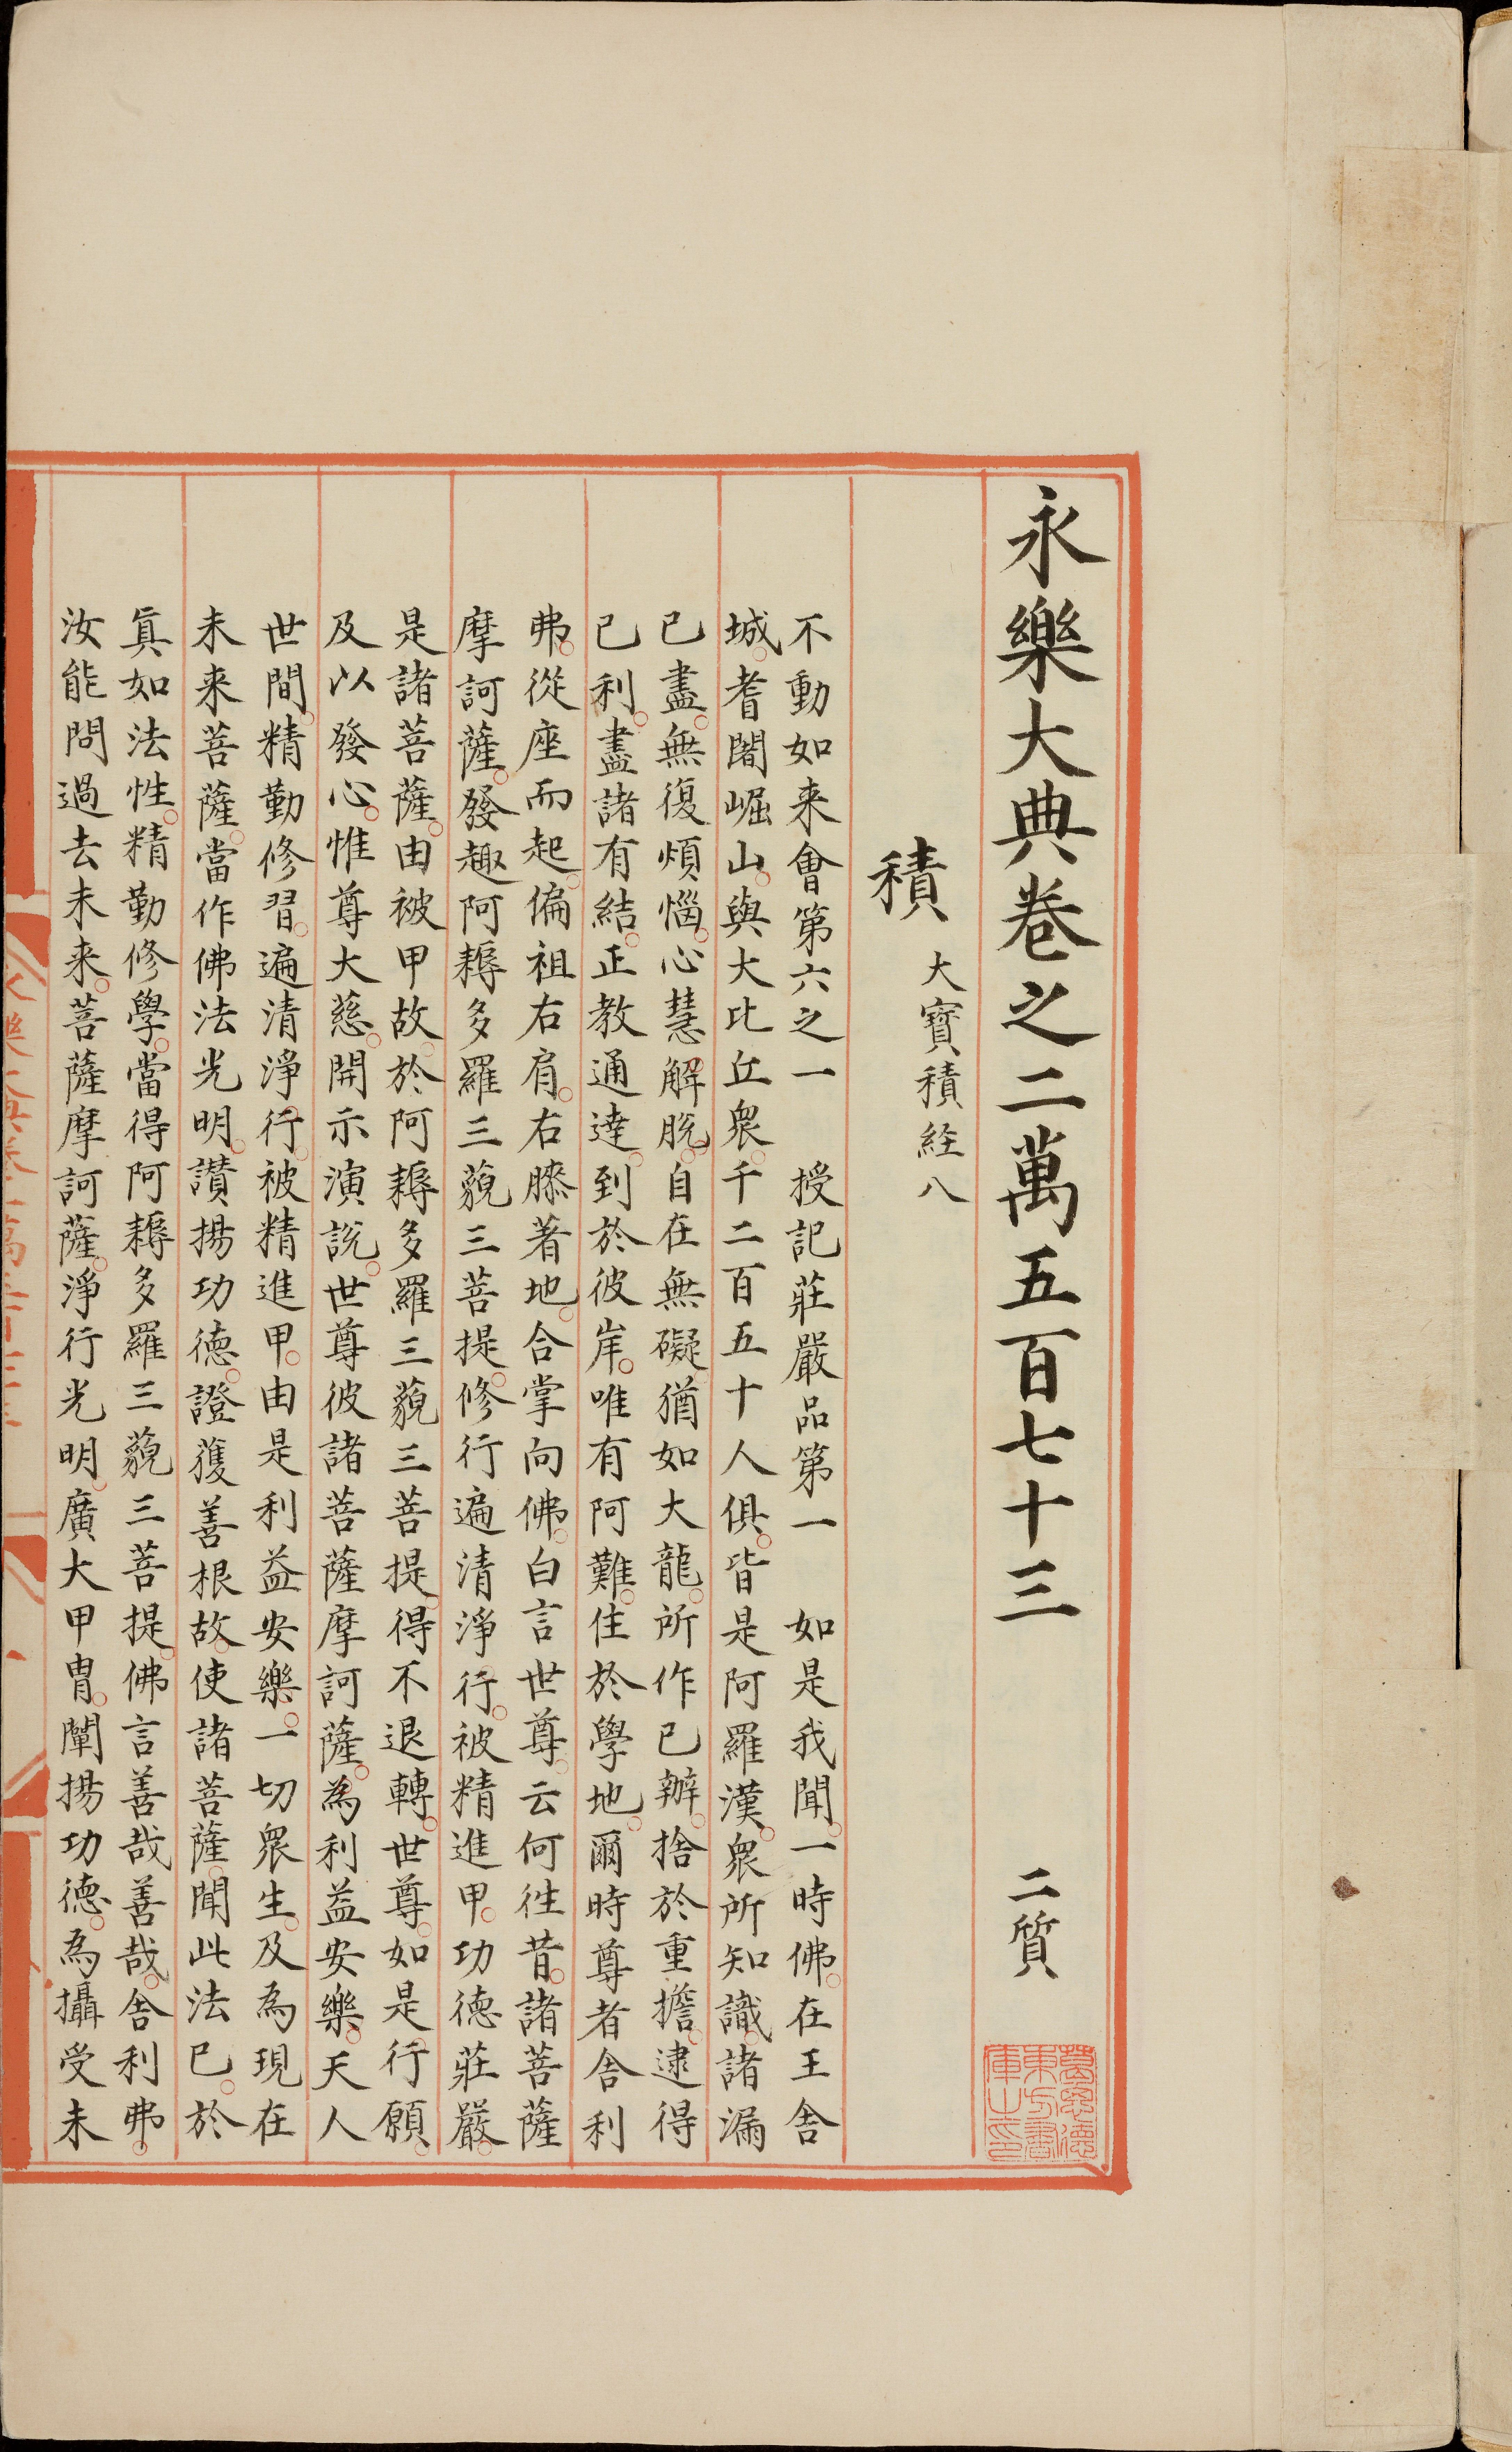 永樂大典卷之二萬五百七十三 二質
積 大寶積經八
不動如来會第六之一 授記莊嚴品第一 如是我聞一時佛在王舍
城耆闍崛山與大比丘衆千二百五十人俱皆是阿羅漢衆所知識諸漏
已盡無復煩惱心慧解脫自在無礙猶如大龍所作已辦捨於重擔逮得
已利盡諸有結正教通達到於彼岸唯有阿難住於學地爾時尊者舍利
弗從座而起偏袒右肩右膝著地合掌向佛白言世尊云何往昔諸菩薩
摩訶薩發趣阿耨多羅三藐三菩提修行遍清淨行被精進甲功德莊嚴
是諸菩薩由被甲故於阿耨多羅三藐三菩提得不退轉世尊如是行願
及以發心惟尊大慈開示演說世尊彼諸菩薩摩訶薩為利益安樂天人
世間精勤修習遍清淨行被精進甲由是利益安樂一切衆生及為現在
未来菩薩當作佛法光明讚揚功德證獲善根故使諸菩薩聞此法已於
真如法性精勤修學當得阿耨多羅三藐三菩提佛言善哉善哉舍利弗
汝能問過去未来菩薩摩訶薩淨行光明廣大甲冑闡揚功德為攝受未
葛思德
東方書
庫之印